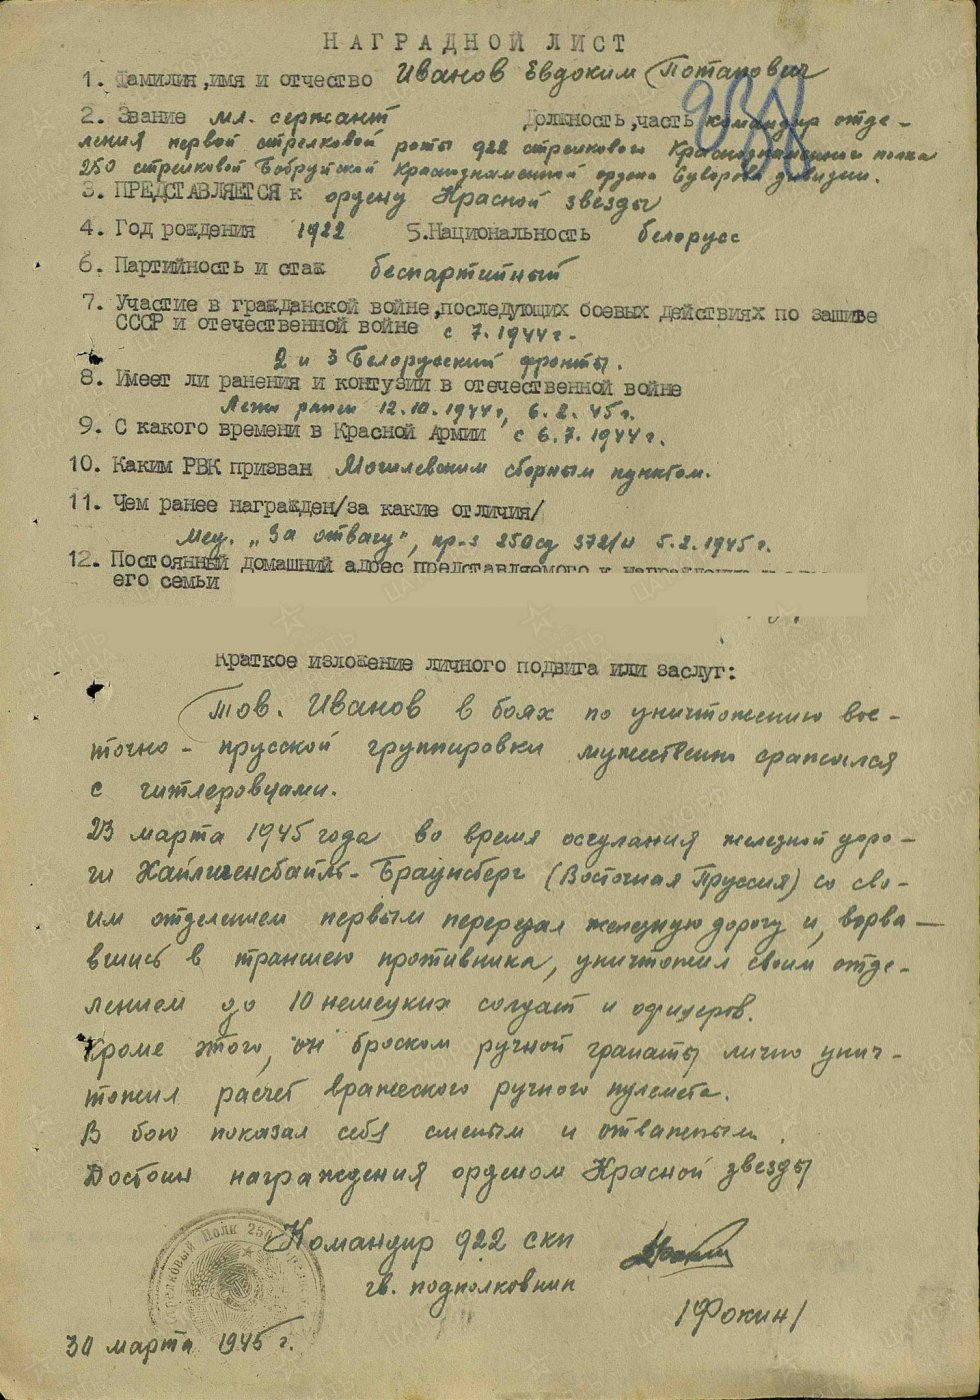 НАГРАДНОЙ ЛИСТ
1. Фамилия, имя и отчество Иванов Евдоким Потапович
2. Звание мл. сержант Должность, часть командир отде-
ления первой стрелковой роты 922 стрелкового Краснознаменного полка
250 стрелковой Бобруйской Краснознаменной ордена Суворова дивизии.
3. ПРЕДСТАВЛЯЕТСЯ к ордену Красной звезды
4. Год рождения 1922 5. Национальность белорусс
6. Партийность и стаж беспартийный
7. Участие в гражданской войне, последующих боевых действиях по защите
СССР и отечественной войне с 7.1944г.
2 и 3 Белорусский фронты.
8. Имеет ли ранения и контузии в отечественной войне
Легко ранен 12.10.1944г, 6.2.45г.
9. С какого времени в Красной Армии с 6.7.1944г.
10. Каким РВК призван Могилевским сборным пунктом.
11. Чем ранее награжден/за какие отличия/
Мед. „За отвагу", пр-з 250сд 372/н 5.2.1945г.
12. Постоянный домашний адрес представляемого к награждению
его семьи
Краткое изложение личного подвига или заслуг:
Тов. Иванов в боях по уничтожению вос-
точно-прусской группировки мужественно сражался
с гитлеровцами.
23 марта 1945 года во время оседлания железной доро-
ги Хайлигенсбайль-Браунсберг (Восточная Пруссия) со сво-
им отделением первым перерезал железную дорогу и, ворва-
вшись в траншею противника, уничтожил своим отде-
лением до 10 немецких солдат и офицеров.
Кроме этого, он броском ручной гранаты лично унич-
тожил расчет вражеского ручного пулемета.
В бою показал себя смелым и отважным.
Достоин награждения орденом Красной звезды
Командир 922 скп
гв. подполковник
/Фокин/
30 марта 1945 г.